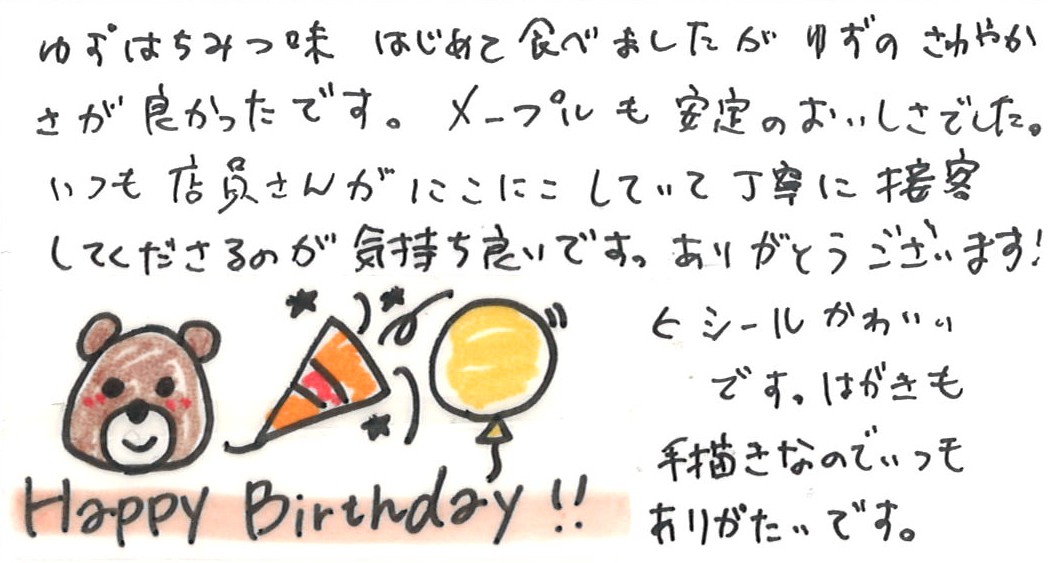 ゆずはちみつ味 はじめて食べましたが ゆずの さわやか
さが 良かったです。 メープルも 安定のおいしさでした。
いつも 店員さんが にこにこ していて 丁寧に 接客
してくださるのが 気持ち良いです。ありがとうございます!
← シール かわいい
です。はがきも
手描きなのでいつも
ありがたいです。
Happy Birthday !!